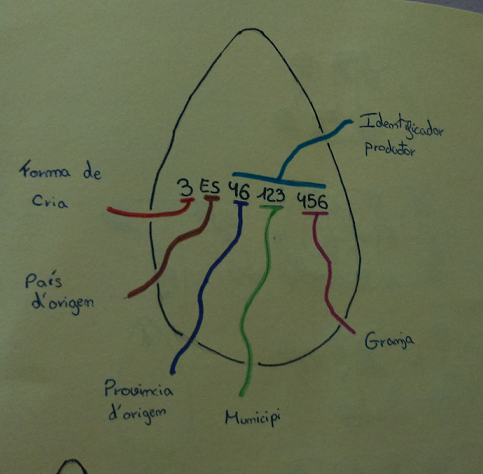 Identificador
productor
Forma de
Cria
3 ES 46 123 456
País
d'origem
Granja
Provincia
d'origem
Municipi